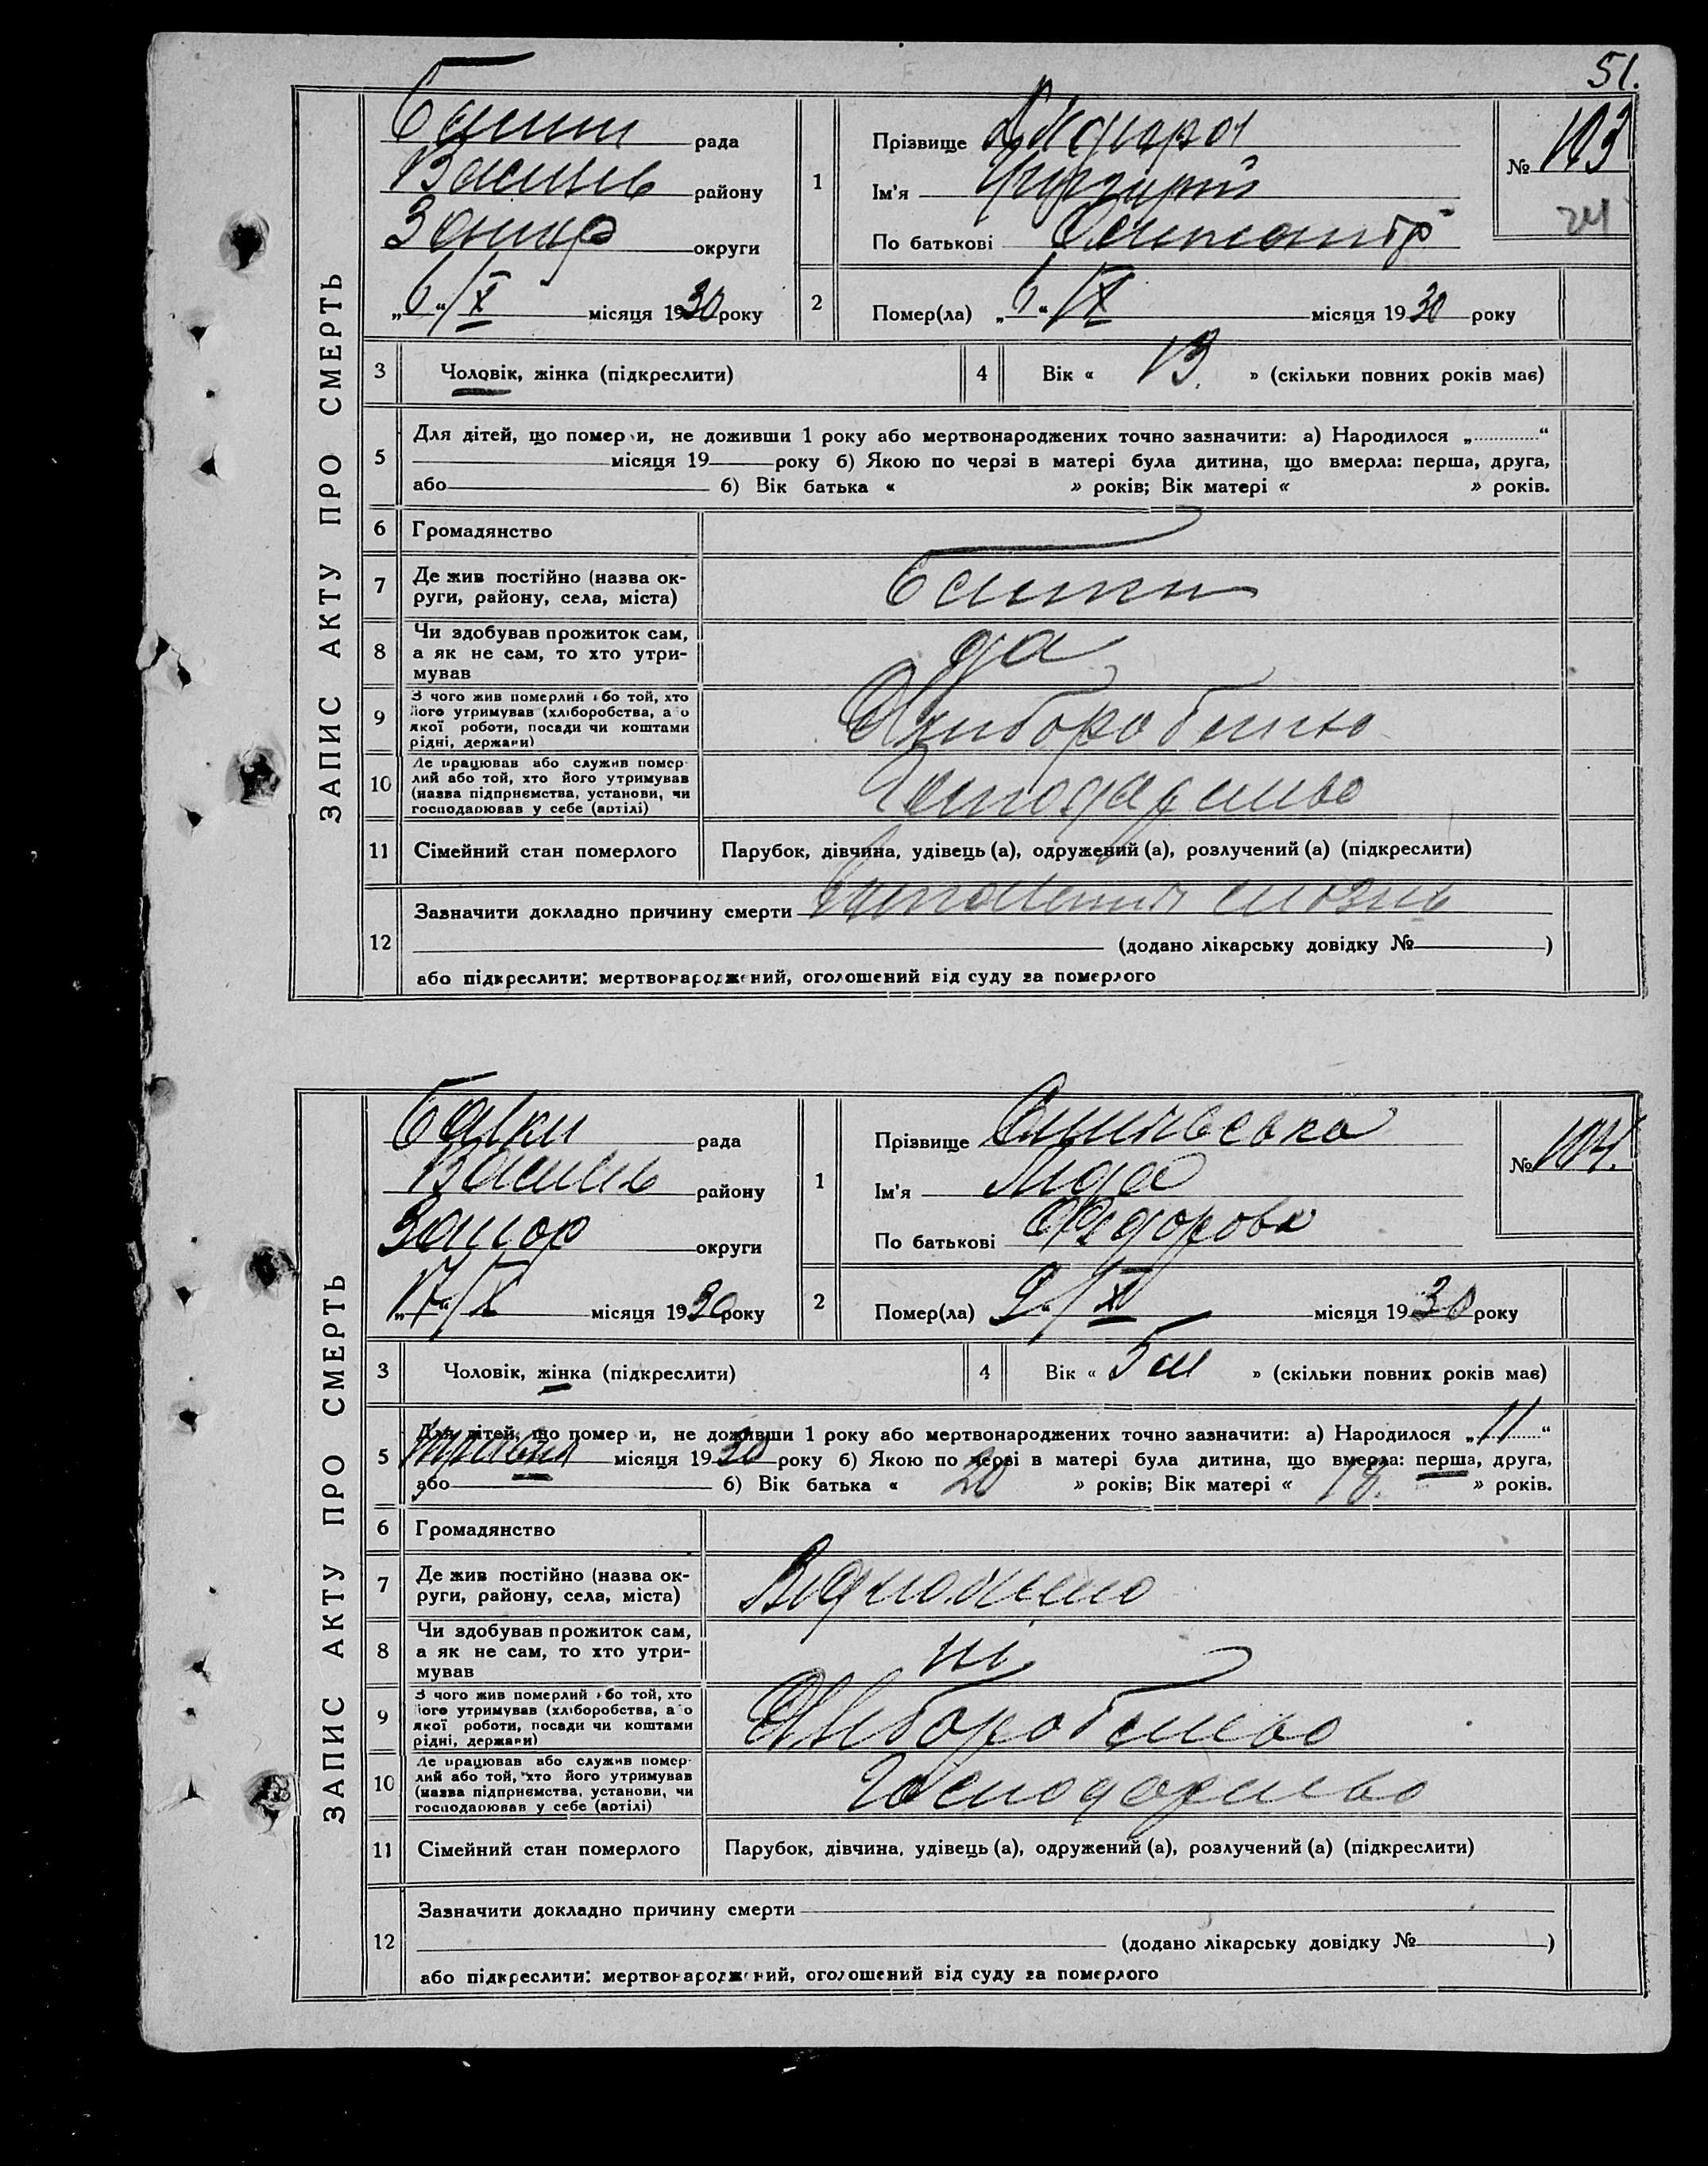 51.
ЗАПИС АКТУ ПРО СМЕРТЬ
Балки рада
Василь району
Запор округи
„6“/X місяця 1930 року
1
Прізвище
Ім'я Григорій
По батькові
№ 103
24
2 Помер(ла) „6“/X місяця 1930 року
3 Чоловік, жінка (підкреслити)
4 Вік « 13. » (скільки повних років має)
5 Для дітей, що померли, не доживши 1 року або мертвонароджених точно зазначити: а) Народилося „ “
місяця 19 року б) Якою по черзі в матері була дитина, що вмерла: перша, друга,
або б) Вік батька « » років; Вік матері « » років.
6 Громадянство
7 Де жив постійно (назва ок-
руги, району, села, міста)
Балки
8 Чи здобував прожиток сам,
а як не сам, то хто утри-
мував
да
9 З чого жив померлий або той, хто
його утримував (хліборобства, або
якої роботи, посади чи коштами
рідні, держави)
Хліборобство
10 Де працював або служив помер-
лий або той, хто його утримував
(назва підприємства, установи, чи
господарював у себе (артілі)
Господарство
11 Сімейний стан померлого
Парубок, дівчина, удівець (а), одружений (а), розлучений (а) (підкреслити)
12 Зазначити докладно причину смерти
(додано лікарську довідку № )
або підкреслити: мертвонароджений, оголошений від суду за померлого
ЗАПИС АКТУ ПРО СМЕРТЬ
Балки рада
Василь району
Запор округи
„17“/X місяця 1930 року
1
Прізвище
Ім'я Лида
По батькові Федорова
№ 104.
2 Помер(ла) 9./XI місяця 1930 року
3 Чоловік, жінка (підкреслити)
4 Вік « 5 м » (скільки повних років має)
5 Для дітей, що померли, не доживши 1 року або мертвонароджених точно зазначити: а) Народилося „11“
травня місяця 1930 року б) Якою по черзі в матері була дитина, що вмерла: перша, друга,
або б) Вік батька « 20 » років; Вік матері « 18. » років.
6 Громадянство
7 Де жив постійно (назва ок-
руги, району, села, міста)
8 Чи здобував прожиток сам,
а як не сам, то хто утри-
мував
ні
9 З чого жив померлий або той, хто
його утримував (хліборобства, або
якої роботи, посади чи коштами
рідні, держави)
Хліборобство
10 Де працював або служив помер-
лий або той, хто його утримував
(назва підприємства, установи, чи
господарював у себе (артілі)
Господарство
11 Сімейний стан померлого
Парубок, дівчина, удівець (а), одружений (а), розлучений (а) (підкреслити)
12 Зазначити докладно причину смерти
(додано лікарську довідку № )
або підкреслити: мертвонароджений, оголошений від суду за померлого